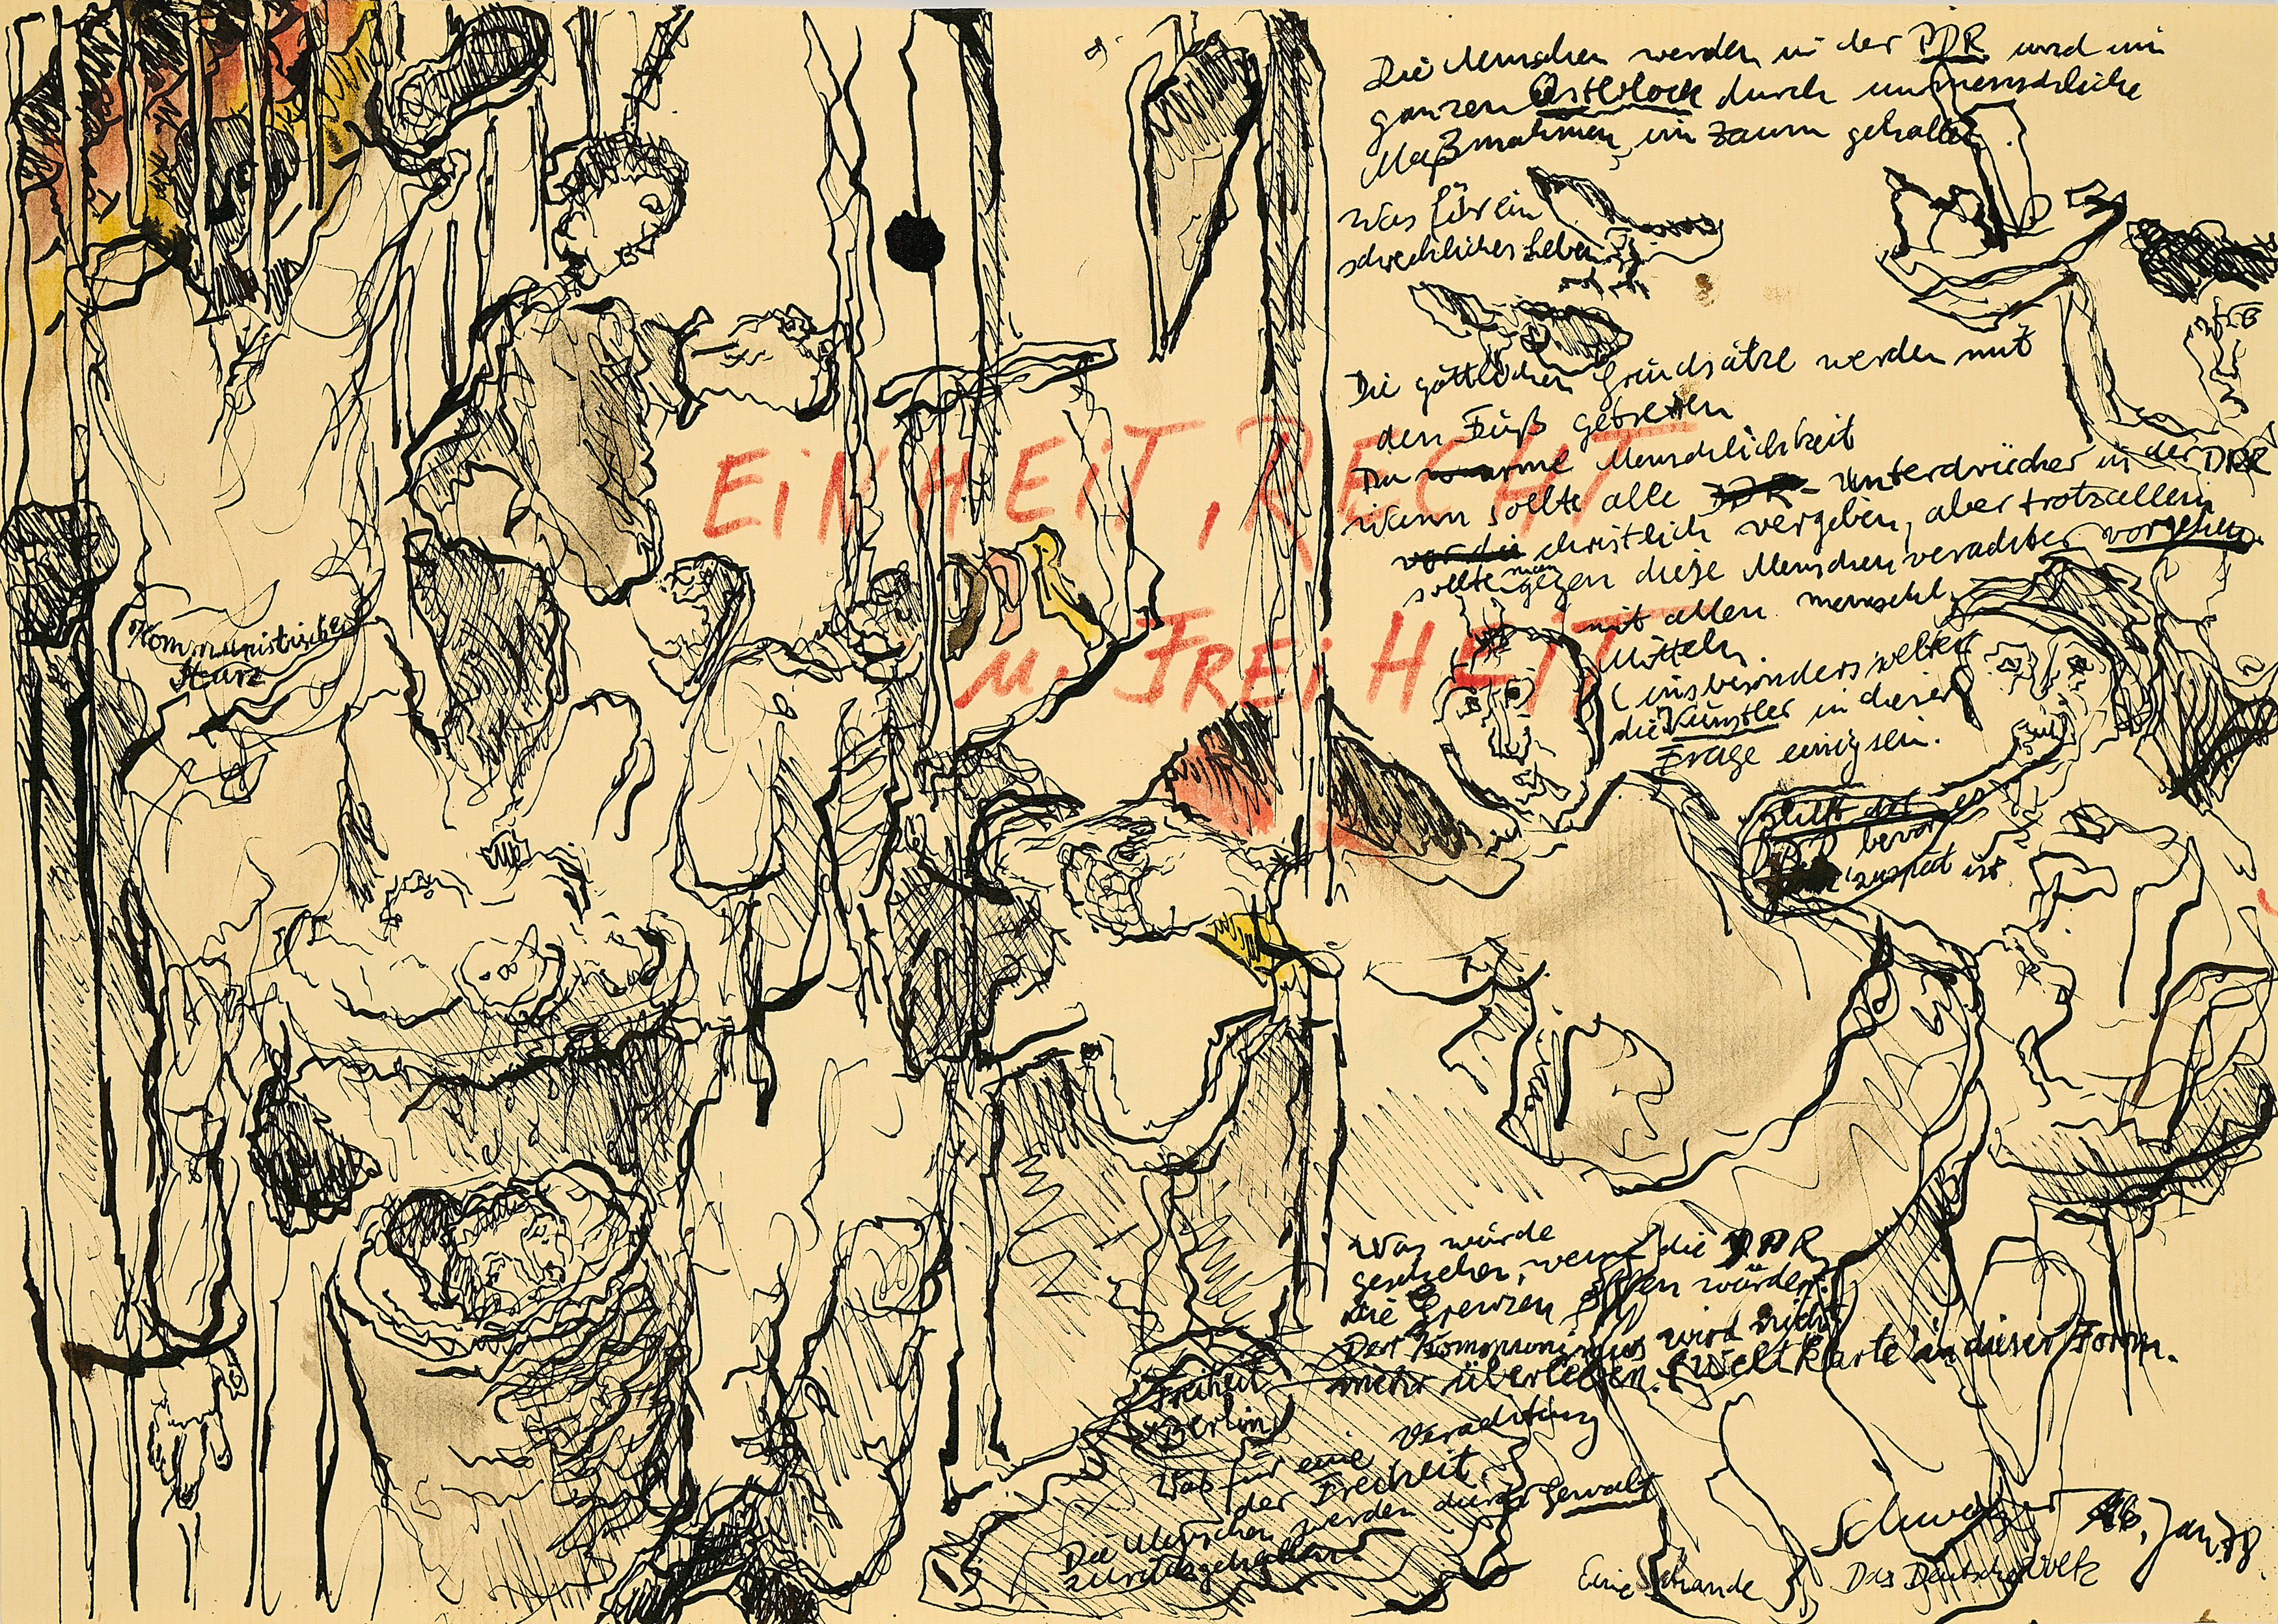 Die Menschen werden in der DDR und im
ganzen Ostblock durch unmenschliche
Maßnahmen im Zaum gehalten.
Was für ein
schreckliches Leben
Die göttlichen Grundsätze werden mit
den Fuß getreten
Du arme Menschlichkeit
Mann sollte alle Unterdrücker in der DDR
christlich vergeben, aber trotzallem
sollte man gegen diese Menschenverachter vorgehen
mit allen menschl.
Mitteln.
(insbesonders sollten
die Künstler in dieser
Frage einig sein.
EiNHEiT, RECHT
u. FREiHEiT
Kommunistische
Helft der
DDR bevor es
zuspät ist
Was würde
geschehen, wenn die DDR
die Grenzen öffen würde?
Der Kommunismus wird nicht
mehr überleben. (Weltkarte in dieser Form.
Freiheit
Berlin
Was für eine Verachtung
der Freiheit.
Die Menschen werden durch Gewalt
zurückgehalten.
16. Jan. 78
Eine Schande
Das Deutsche Volk